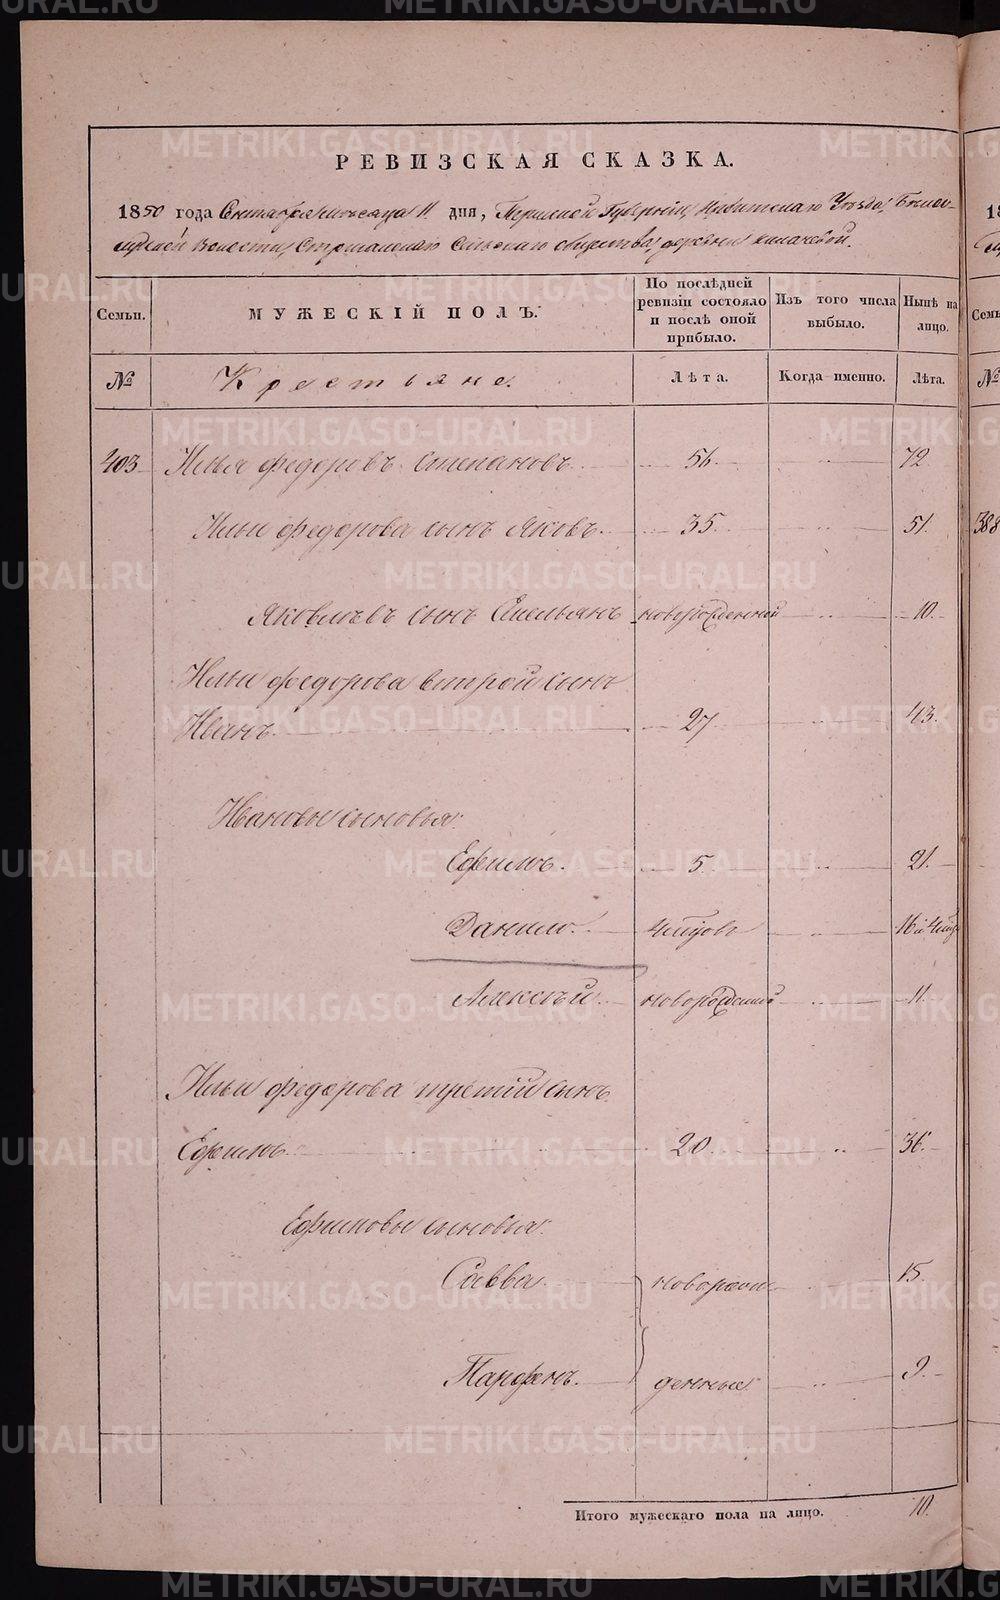 РЕВИЗСКАЯ СКАЗКА.
1850 года Сентября месяца 11 дня, Пермской Губернии, Ирбитскаго Уѣзда,
волости, Стриганскаго Сельскаго общества, деревни
Семьи.
МУЖЕСКІЙ ПОЛЪ.
По послѣдней ревизіи состояло и послѣ оной прибыло.
Изъ того числа выбыло.
Нынѣ на лицо.
№
Крестьяне.
Лѣта.
Когда именно.
Лѣта.
403 Илья Федоровъ Степановъ 56 72
Ильи Федорова сынъ Яковъ 35 51
Яковлевъ сынъ Емельянъ новорожденной 10
Ильи Федорова второй сынъ
Иванъ 27 43
Ивановы сыновья:
Ефимъ 5 21
Данило 16
Алексѣй 11
Ильи Федорова третій сынъ
Ефимъ 20 36
Ефимовы сыновья:
Савва новорож 15
Парфенъ денные 9
Итого мужескаго пола на лицо. 10
388
METRIKI.GASO-URAL.RU